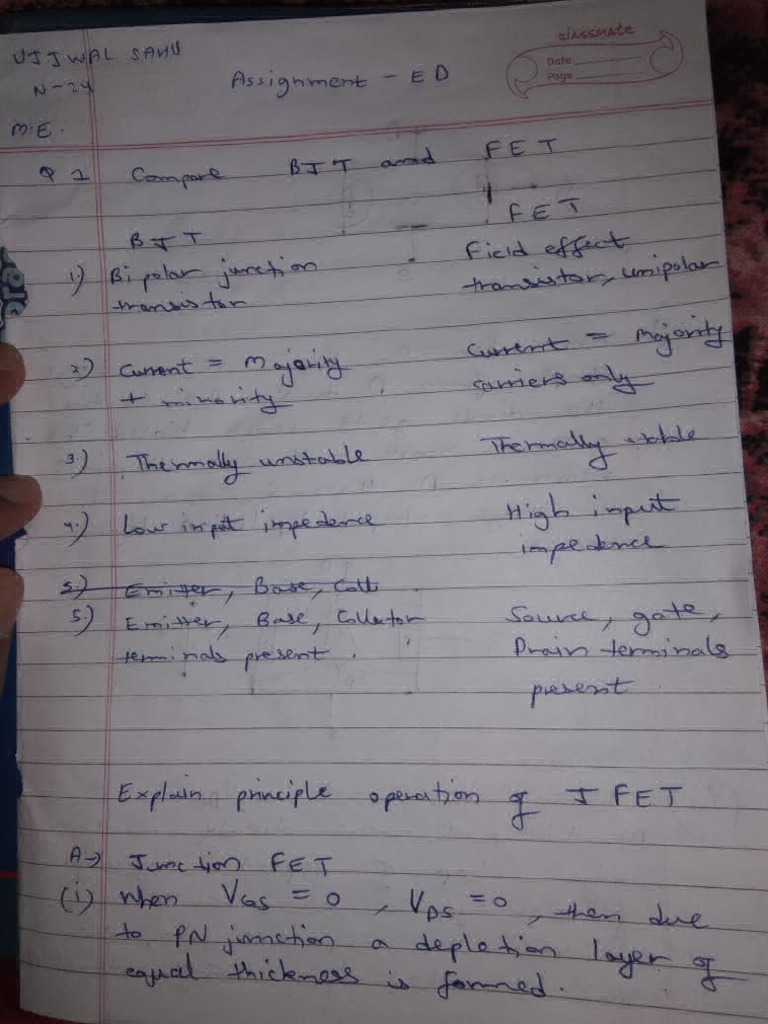 UJJWAL SAHU
N-24
M.E.
Assignment - ED
classmate
Date
Page
Q 1 Compare BJT and FET
BJT FET
1.) Bi polar junction transistor
Field effect transistor, unipolar
2.) Current = Majority + minority
Current = Majority carriers only
3.) Thermally unstable
Thermally stable
4.) Low input impedence
High input impedence
5.) Emitter, Base, Coll
5.) Emitter, Base, Collector terminals present.
Source, gate, Drain terminals present.
Explain principle operation of J FET
A→ Junction FET
(i) When VGS = 0, VDS = 0, then due
to PN junction a depletion layer of
equal thickness is formed.